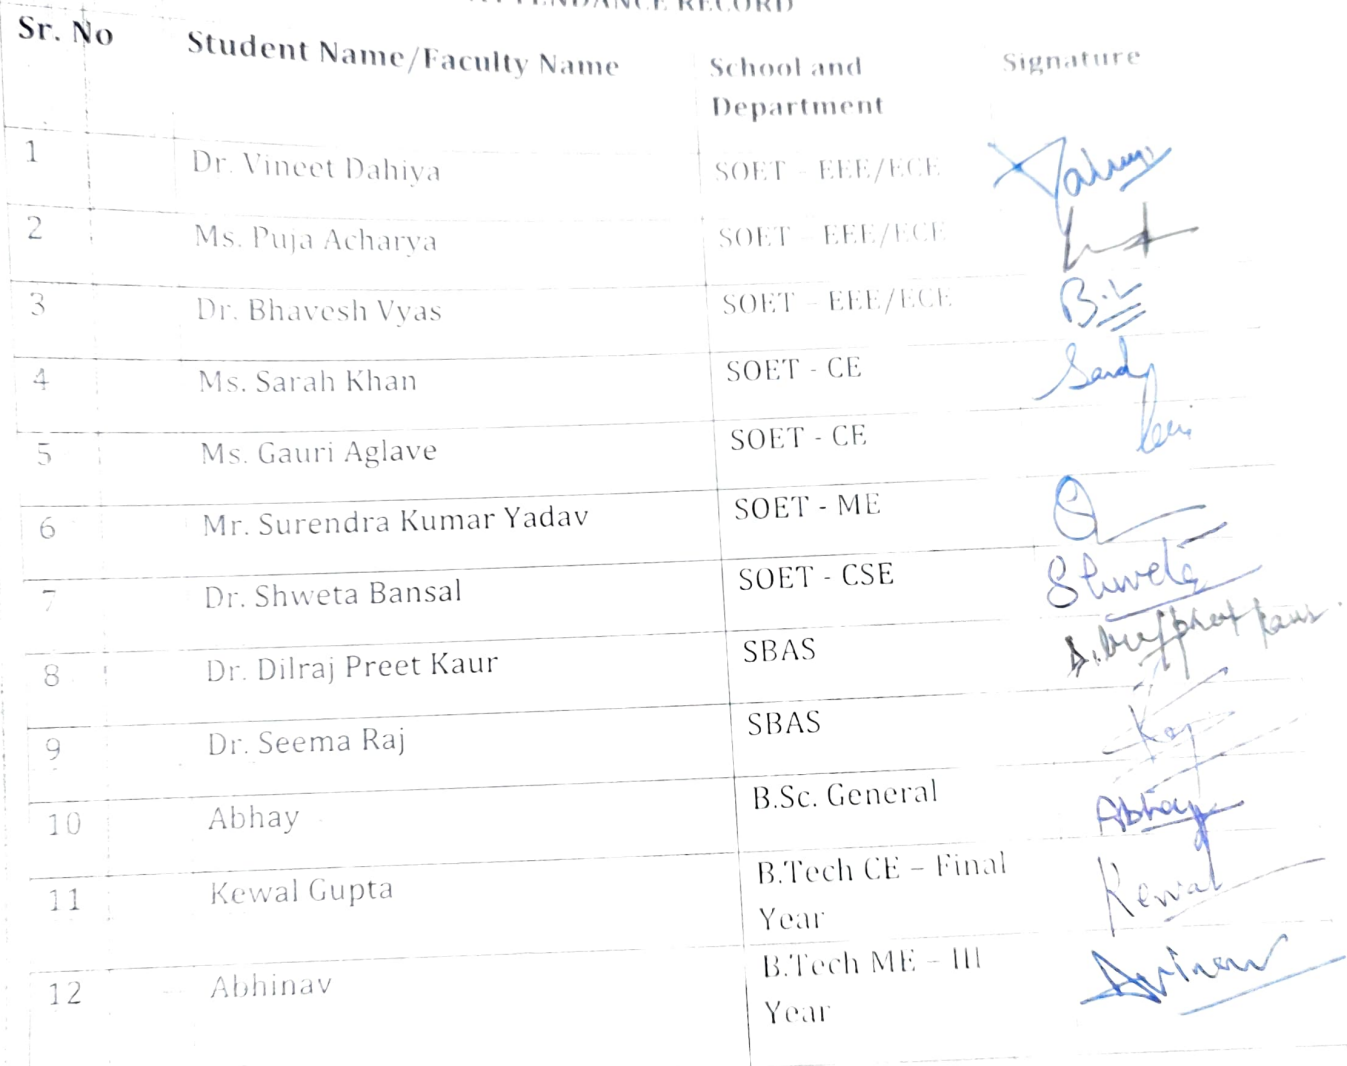 ATTENDANCE RECORD
Sr. No Student Name/Faculty Name School and Department Signature
1 Dr. Vineet Dahiya SOET - EEE/ECE
2 Ms. Puja Acharya SOET - EEE/ECE
3 Dr. Bhavesh Vyas SOET - EEE/ECE
4 Ms. Sarah Khan SOET - CE
5 Ms. Gauri Aglave SOET - CE
6 Mr. Surendra Kumar Yadav SOET - ME
7 Dr. Shweta Bansal SOET - CSE Shweta
8 Dr. Dilraj Preet Kaur SBAS
9 Dr. Seema Raj SBAS
10 Abhay B.Sc. General Abhay
11 Kewal Gupta B.Tech CE – Final Kewal
Year
12 Abhinav B.Tech ME – III
Year